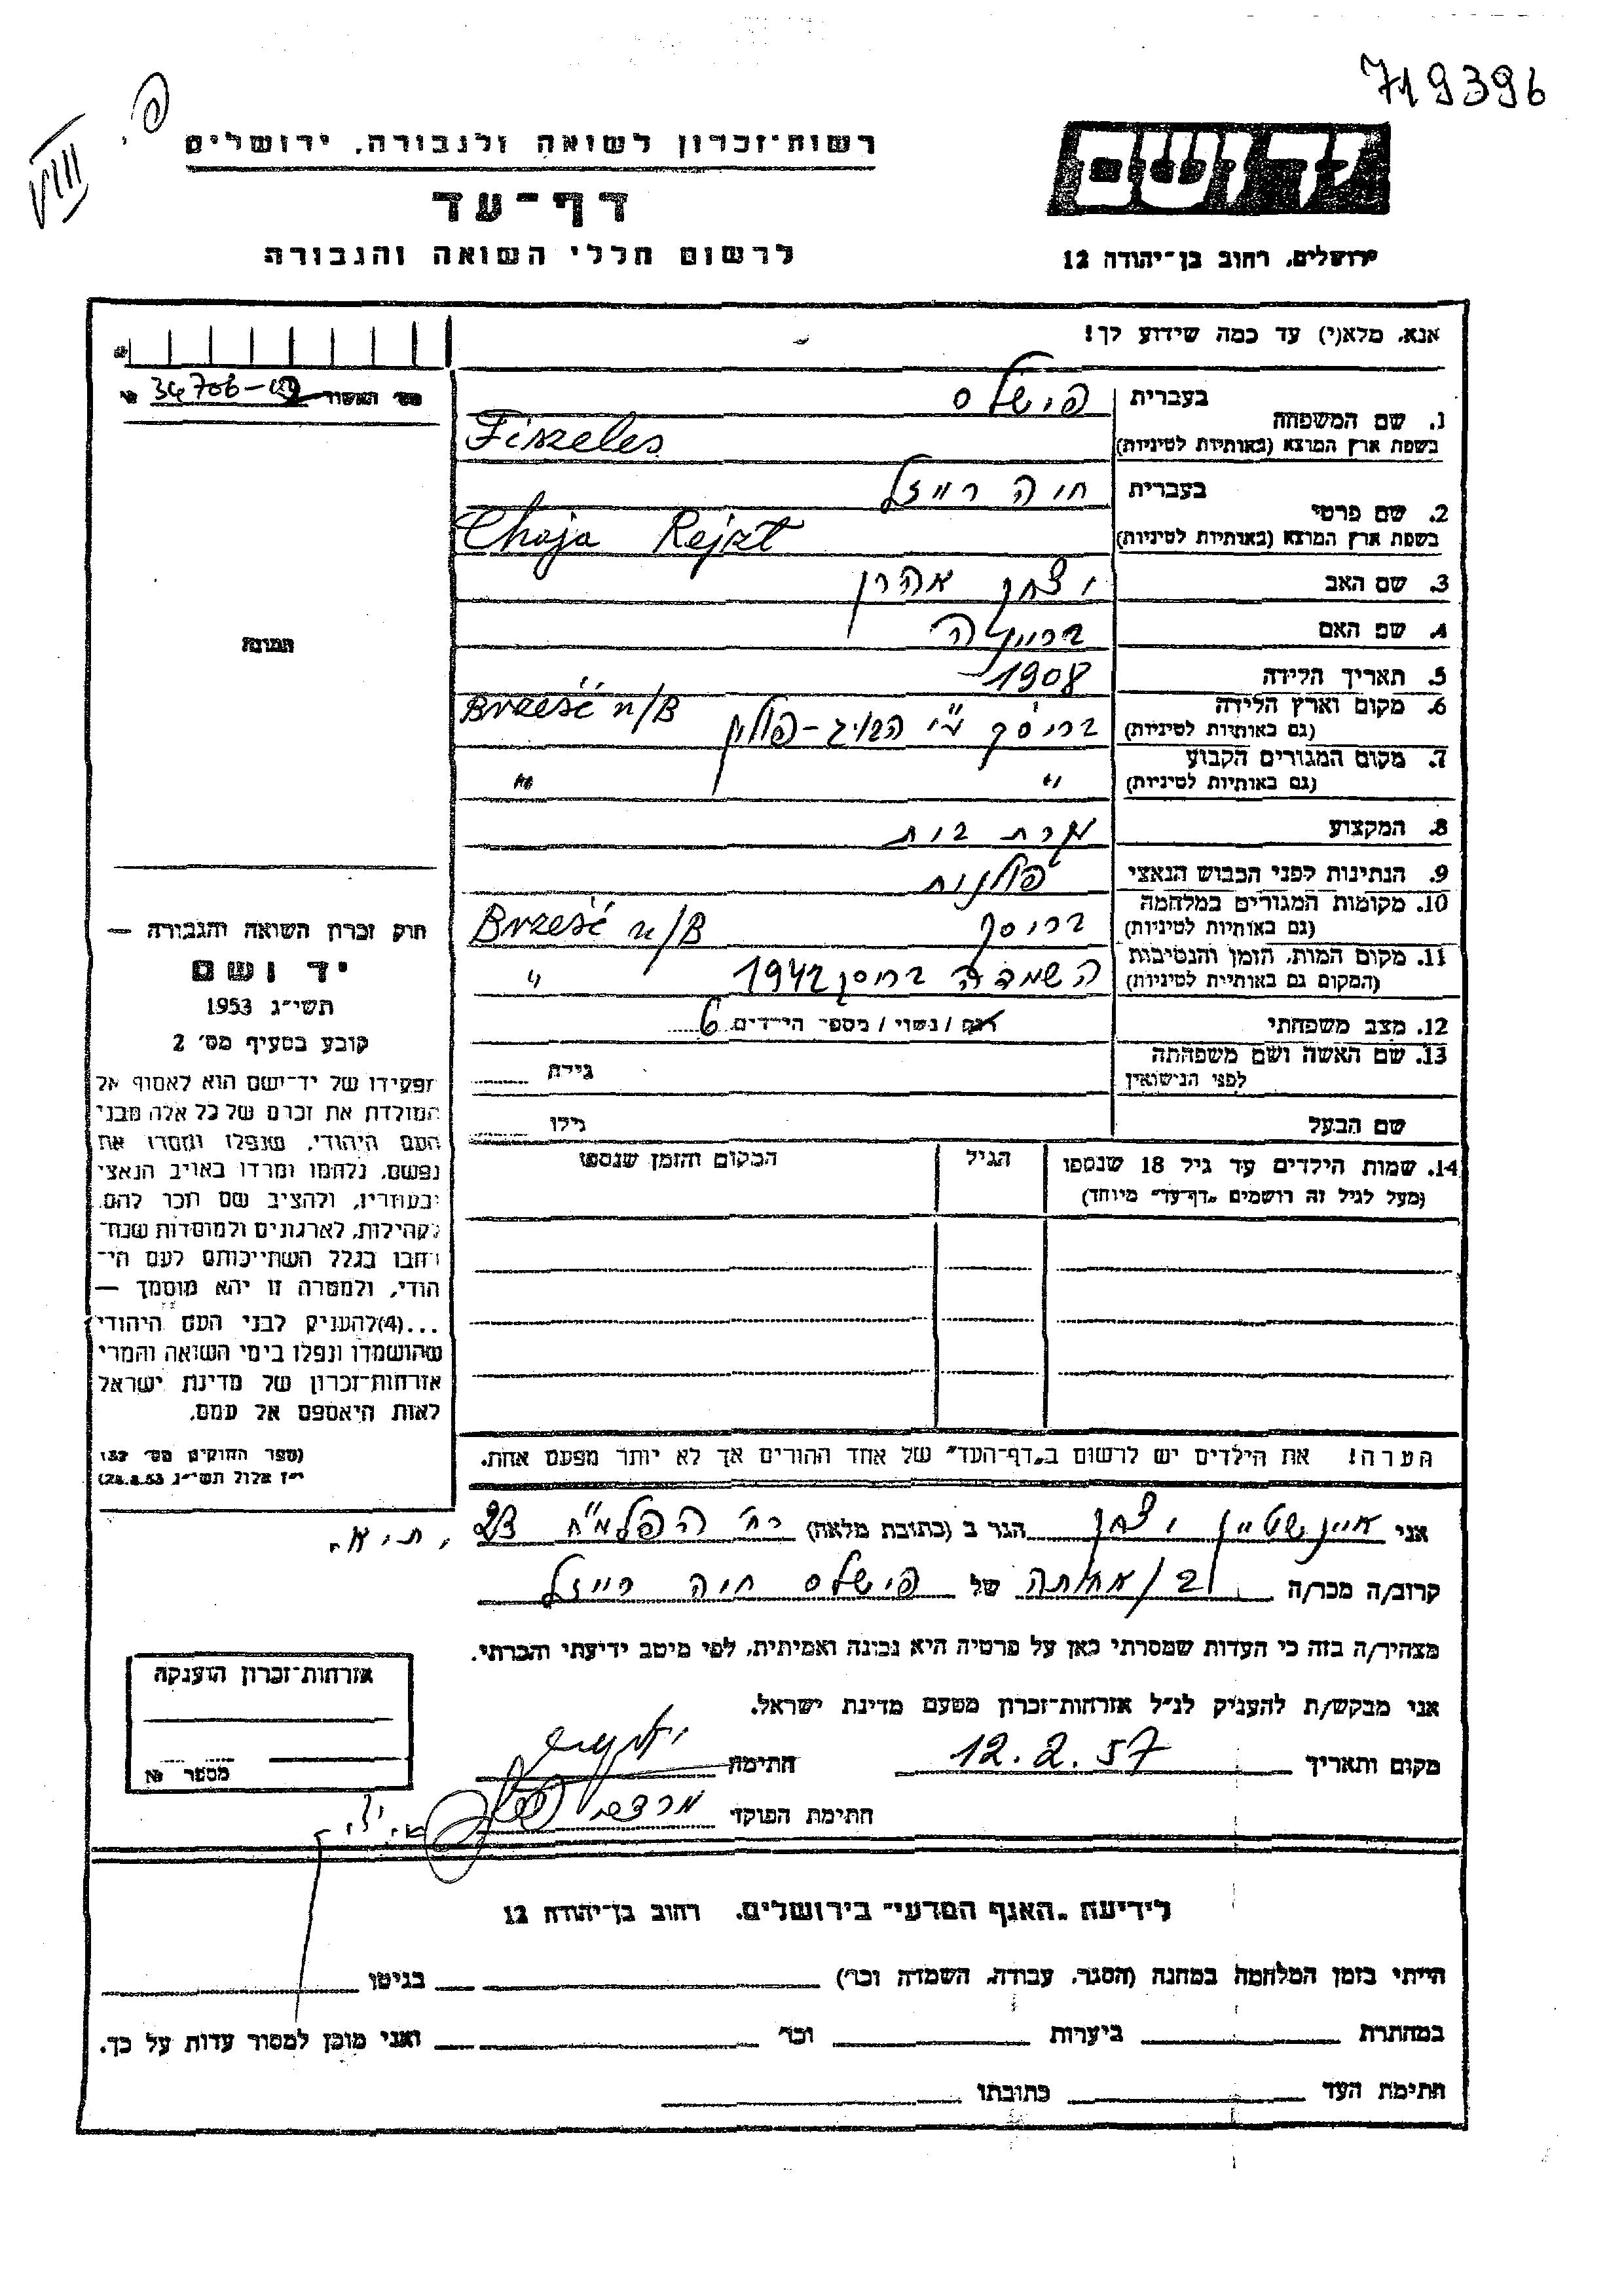 719396
פ.
VIII
יד ושם
רשות־זכרון לשואה ולגבורה, ירושלים
דף־עד
לרשום חללי השואה והגבורה
ירושלים, רחוב בן־יהודה 12
אנא, מלא(י) עד כמה שידוע לך!
מס׳ האשור 34706-
1. שם המשפחה
בעברית פישלס
בשפת ארץ המוצא (באותיות לטיניות) Fiszeles
2. שם פרטי
בעברית חיה רייזל
בשפת ארץ המוצא (באותיות לטיניות) Chaja Rejzt
3. שם האב יצחק אהרן
4. שם האם
5. תאריך הלידה 1908
6. מקום וארץ הלידה
(גם באותיות לטיניות) בריסק ע״י הבוג-פולין Brześć n/B
7. מקום המגורים הקבוע
(גם באותיות לטיניות) " "
8. המקצוע עקרת בית
9. הנתינות לפני הכבוש הנאצי פולנית
10. מקומות המגורים במלחמה
(גם באותיות לטיניות) בריסק Brześć n/B
11. מקום המות, הזמן והנסיבות
(המקום גם באותיות לטיניות) השמדה בריסק 1942 "
12. מצב משפחתי רוק / נשוי / מספר הילדים 6
13. שם האשה ושם משפחתה
לפני הנישואין גילה
שם הבעל גילו
14. שמות הילדים עד גיל 18 שנספו
(מעל לגיל זה רושמים „דף־עד״ מיוחד)
הגיל
המקום והזמן שנספו
הערה! את הילדים יש לרשום ב„דף־העד״ של אחד ההורים אך לא יותר מפעם אחת.
התמונה
חוק זכרון השואה והגבורה —
יד ושם
תשי״ג 1953
קובע בסעיף מס׳ 2
תפקידו של יד־ושם הוא לאסוף אל
המולדת את זכרם של כל אלה מבני
העם היהודי, שנפלו ומסרו את
נפשם, נלחמו ומרדו באויב הנאצי
ובעוזריו, ולהציב שם וזכר להם,
לקהילות, לארגונים ולמוסדות שנח־
רבו בגלל השתייכותם לעם הי־
הודי, ולמטרה זו יהא מוסמך —
...(4)להעניק לבני העם היהודי
שהושמדו ונפלו בימי השואה והמרי
אזרחות־זכרון של מדינת ישראל
לאות היאספם אל עמם.
(ספר החוקים מס׳ 132
י״ז אלול תשי״ג 28.8.53)
אני איינשטיין יצחק הגר ב (כתובת מלאה) רח׳ הפלמ״ח 23, ת.א.
קרוב/ה מכר/ה בן אחותה של פישלס חיה רייזל
מצהיר/ה בזה כי העדות שמסרתי כאן על פרטיה היא נכונה ואמיתית, לפי מיטב ידיעתי והכרתי.
אני מבקש/ת להעניק לנ״ל אזרחות־זכרון מטעם מדינת ישראל.
מקום ותאריך 12.2.57 חתימה
חתימת הפוקד
אזרחות־זכרון הוענקה
מספר №
לידיעת „האגף המדעי״ בירושלים, רחוב בן־יהודה 12
הייתי בזמן המלחמה במחנה (הסגר, עבודה, השמדה וכו׳) בגיטו
במחתרת ביערות וכו׳ ואני מוכן למסור עדות על כך.
חתימת העד כתובתו